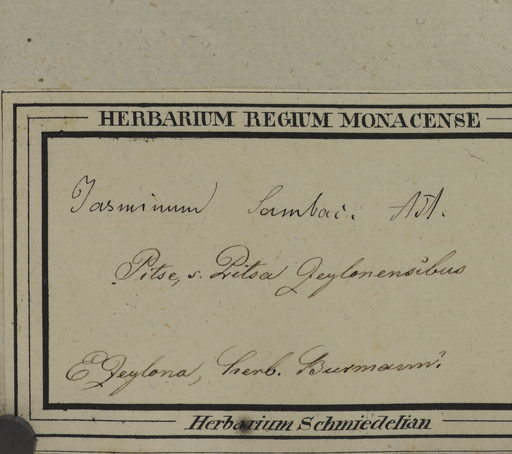 HERBARIUM REGIUM MONACENSE
Jasminum Sambac. Ait.
Pitse, s. Pitsa Zeylonensibus
E Zeylona, herb. Burmanni.
Herbarium Schmiedelian